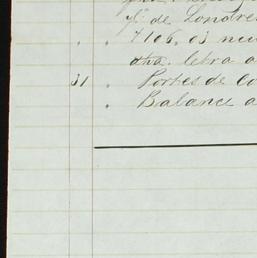 de Londre
7106.03 neu
dha. letra a
31 . Portes de Co
. Balance a